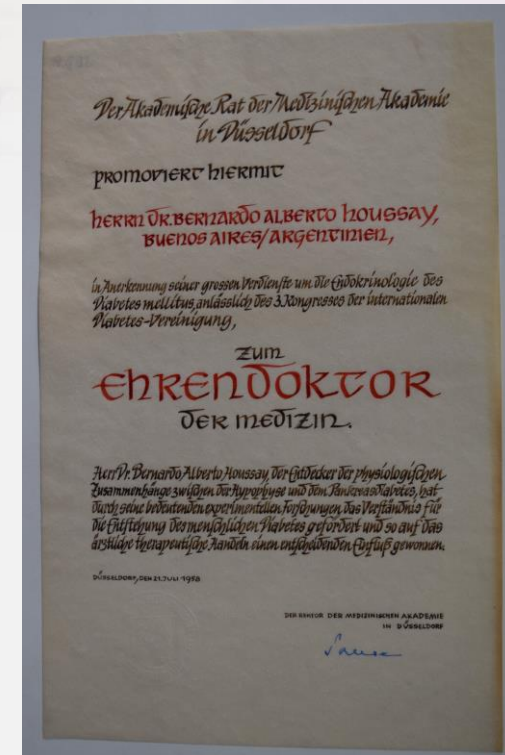 Der Akademische Rat der Medizinischen Akademie
in Düsseldorf
promoviert hiermit
herrn Dr. Bernardo Alberto Houssay,
Buenos Aires/Argentinien,
in Anerkennung seiner grossen Verdienste um die Endokrinologie des
Diabetes mellitus, anlässlich des 3. Kongresses der internationalen
Diabetes-Vereinigung,
zum
Ehrendoktor
der Medizin.
Herr Dr. Bernardo Alberto Houssay, der Entdecker der physiologischen
Zusammenhänge zwischen der Hypophyse und dem Pankreasdiabetes, hat
durch seine bedeutenden experimentellen Forschungen das Verständnis für
die Entstehung des menschlichen Diabetes gefördert und so auf das
ärztliche therapeutische Handeln einen entscheidenden Einfluß gewonnen.
DÜSSELDORF, DEN 21. JULI 1958
DER REKTOR DER MEDIZINISCHEN AKADEMIE
IN DÜSSELDORF